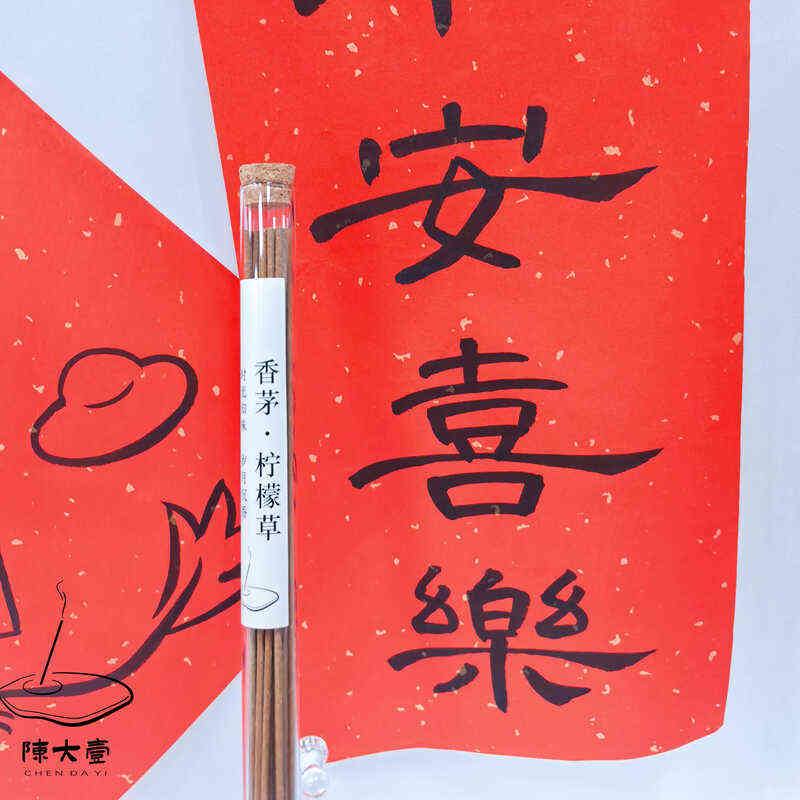 安喜樂
香茅·柠檬草
陳大壹
CHEN DA YI